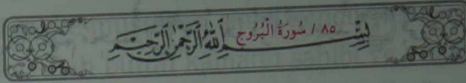 ٨٥ / سُورَةُ الْبُرُوجِ
بِسْمِ اللَّهِ الرَّحْمَٰنِ الرَّحِيمِ